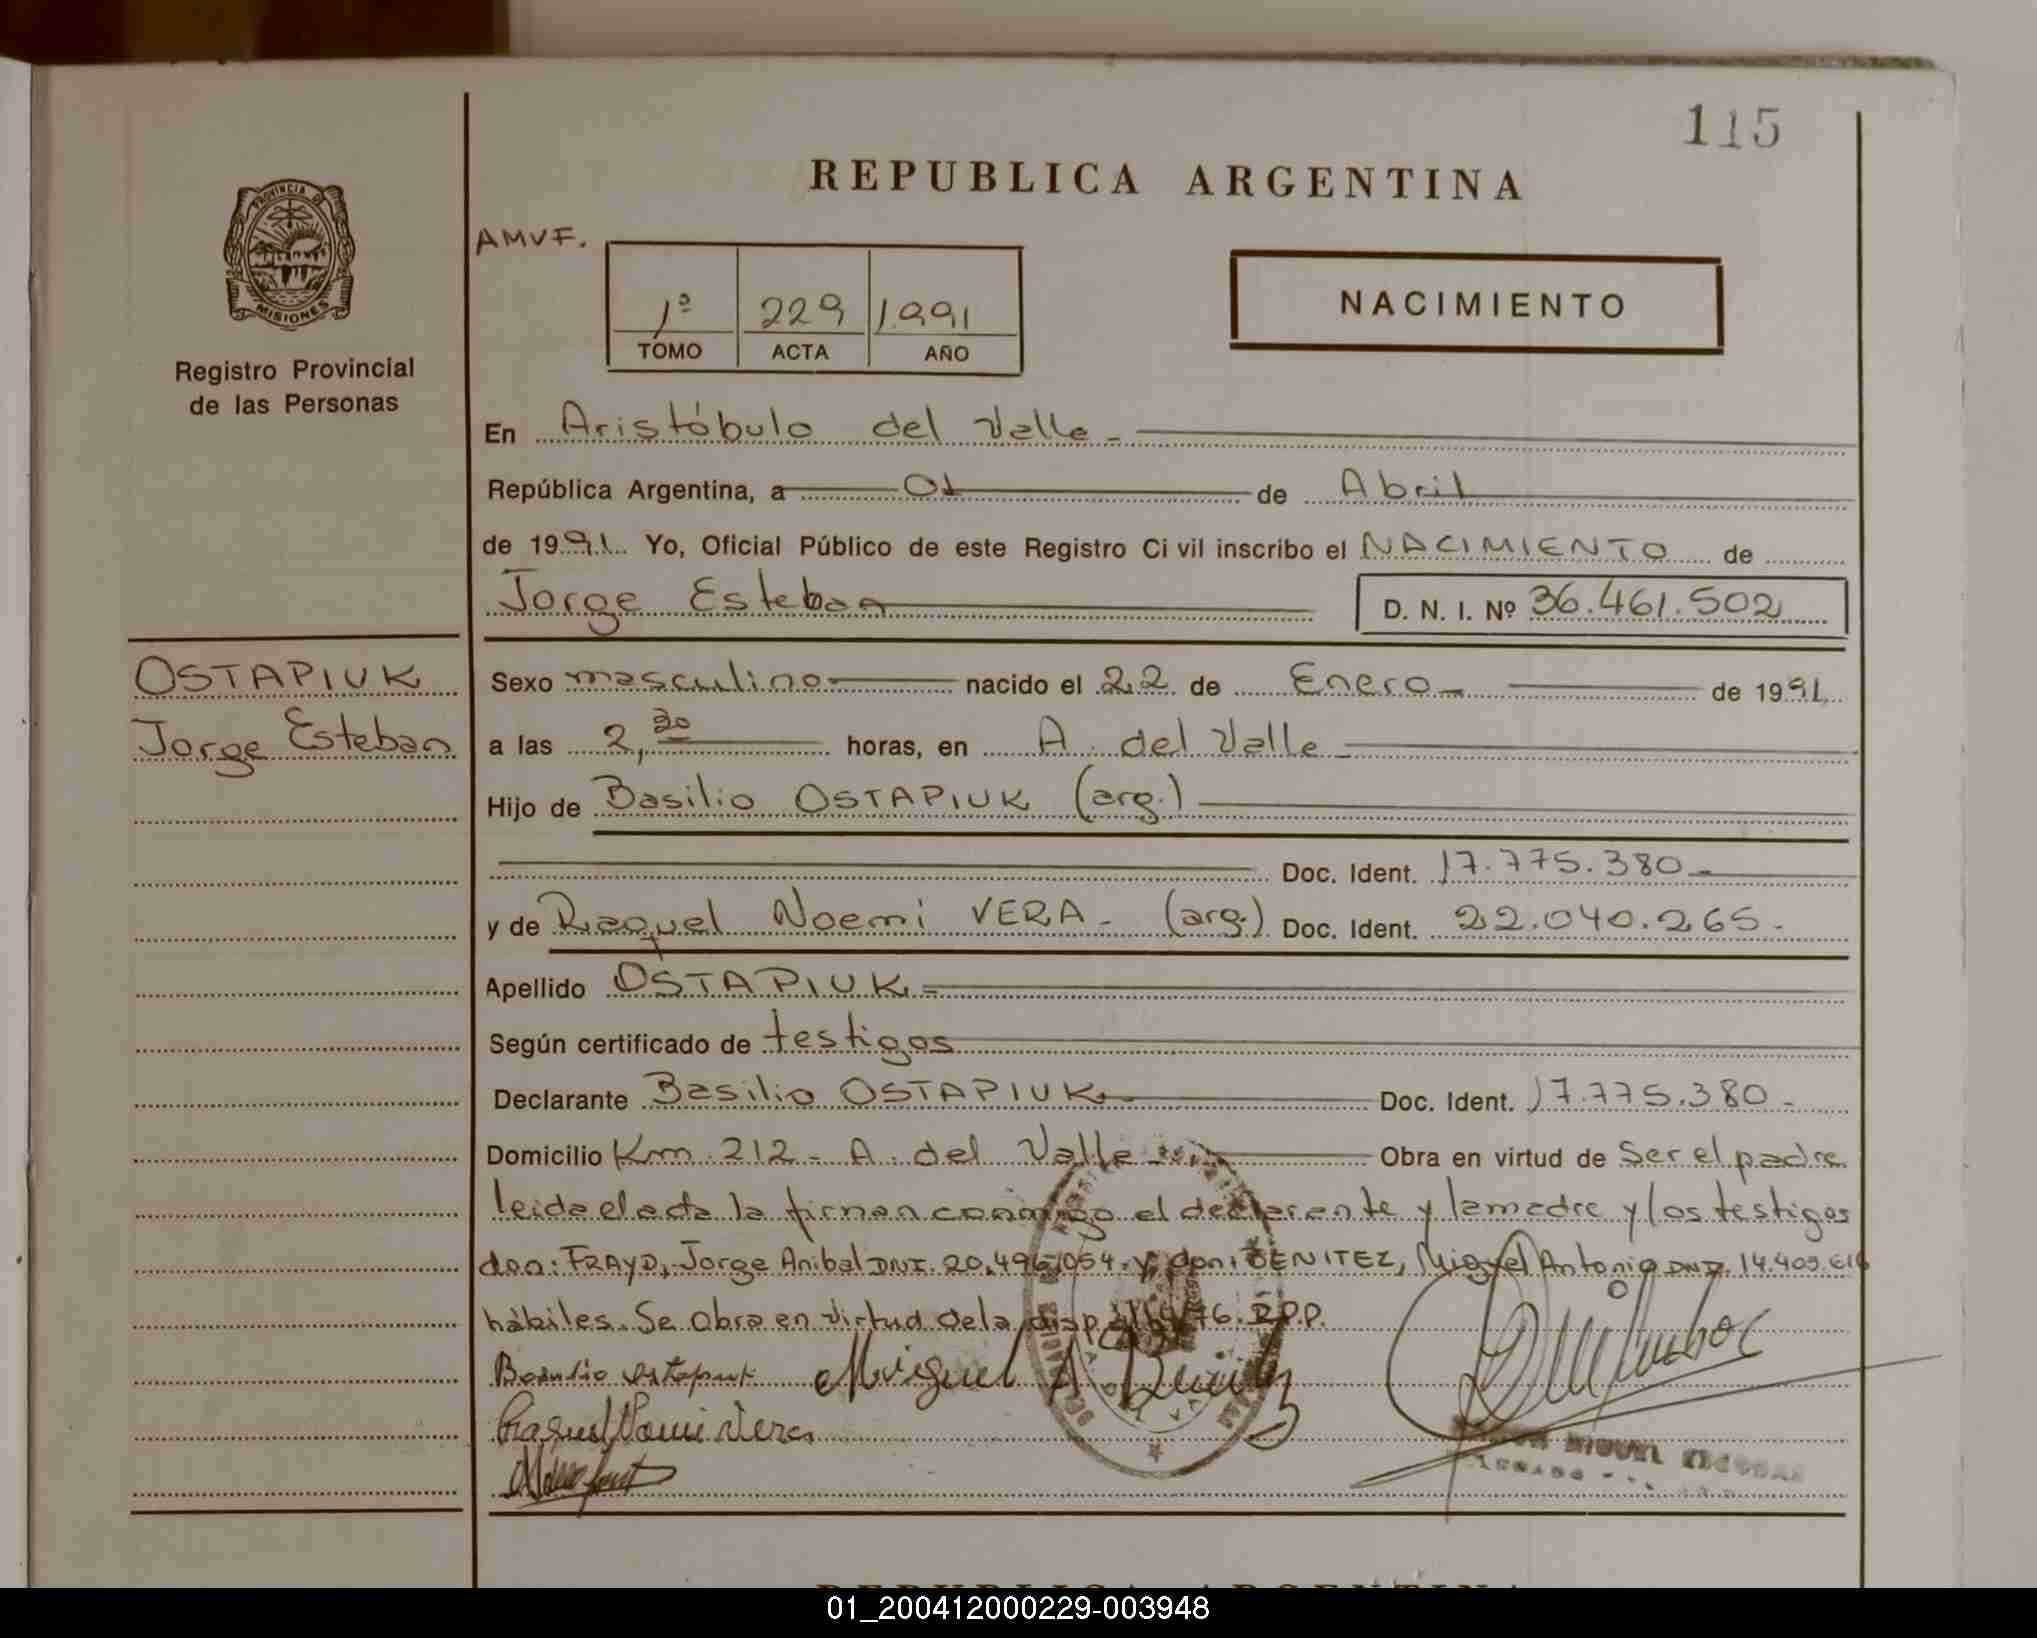 115
REPUBLICA ARGENTINA
PROVINCIA DE
MISIONES
AMVF.
1º 229 1991
TOMO ACTA AÑO
NACIMIENTO
Registro Provincial
de las Personas
En Aristóbulo del Valle-
República Argentina, a 01 de Abril
de 1991. Yo, Oficial Público de este Registro Ci vil inscribo el NACIMIENTO de
Jorge Esteban D. N. I. Nº 36.461.502
OSTAPIUK
Jorge Esteban
Sexo masculino nacido el 22 de Enero de 1991
a las 2,30 horas, en A. del Valle
Hijo de Basilio OSTAPIUK (arg.)
Doc. Ident. 17.775.380
y de Raquel Noemi VERA - (arg.) Doc. Ident. 22.040.265.
Apellido OSTAPIUK
Según certificado de testigos
Declarante Basilio OSTAPIUK Doc. Ident. 17.775.380-
Domicilio Km. 212 - A. del Valle Obra en virtud de Ser el padre
leida el acta la firman conmigo el declarante y la madre y los testigos
don: FRAYD, Jorge Anibal DNI. 20.496.054. y don: BENITEZ, Miguel Antonio DNI. 14.409.616
hábiles. Se obra en virtud de la disp. 76. R.P.P.
Raquel Noemi Vera
MIGUEL ESCOBAR
REPUBLICA ARGENTINA
01_200412000229-003948